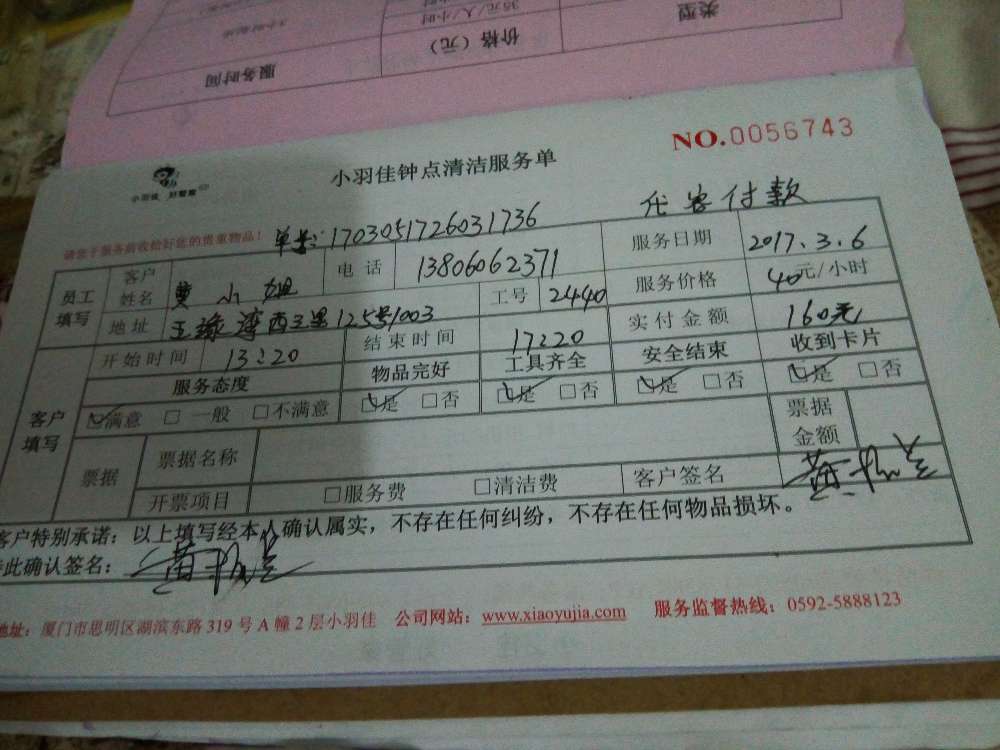 服务时间
价格（元）
类型
35元/人/小时
NO.0056743
小羽佳 好管家
小羽佳钟点清洁服务单
代客付款
请您于服务前收拾好您的贵重物品！ 单号：1703051726031736
员工填写 客户姓名 黄小姐 电话 13806062371 服务日期 2017.3.6
地址 西三里125号1003 工号 2440 服务价格 40元/小时
开始时间 13:20 结束时间 17:20 实付金额 160元
客户填写 服务态度 物品完好 工具齐全 安全结束 收到卡片
☑满意 □一般 □不满意 ☑是 □否 ☑是 □否 ☑是 □否 ☑是 □否
票据 票据名称 票据金额
开票项目 □服务费 □清洁费 客户签名
客户特别承诺：以上填写经本人确认属实，不存在任何纠纷，不存在任何物品损坏。
此确认签名：
地址：厦门市思明区湖滨东路319号A幢2层小羽佳 公司网站：www.xiaoyujia.com 服务监督热线：0592-5888123